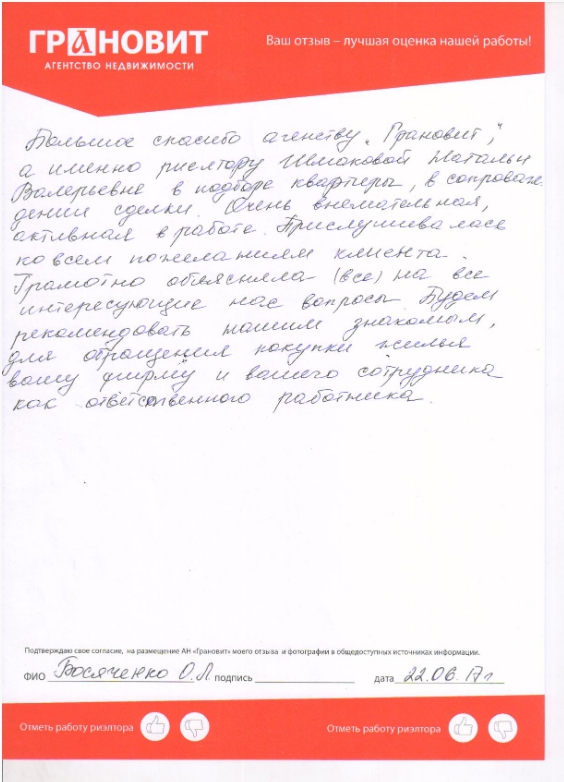 ГРАНОВИТ
АГЕНТСТВО НЕДВИЖИМОСТИ
Ваш отзыв – лучшая оценка нашей работы!
Большое спасибо агенству „Грановит",
а именно риелтору Шмаковой Натальи
Валерьевне в подборе квартиры, в сопровож-
дении сделки. Очень внемательная,
активная в работе. Прислушивалась
ко всем пожеланиям клиента.
Грамотно обьясняла (все) на все
интересующие нас вопросы. Будем
рекомендовать нашим знакомым,
для обращения покупки жилья
вашу фирму и вашего сотрудника
как ответственного работника.
Подтверждаю свое согласие, на размещение АН «Грановит» моего отзыва и фотографии в общедоступных источниках информации.
ФИО Босяченко О.Л подпись дата 22.06.17г
Отметь работу риэлтора Отметь работу риэлтора